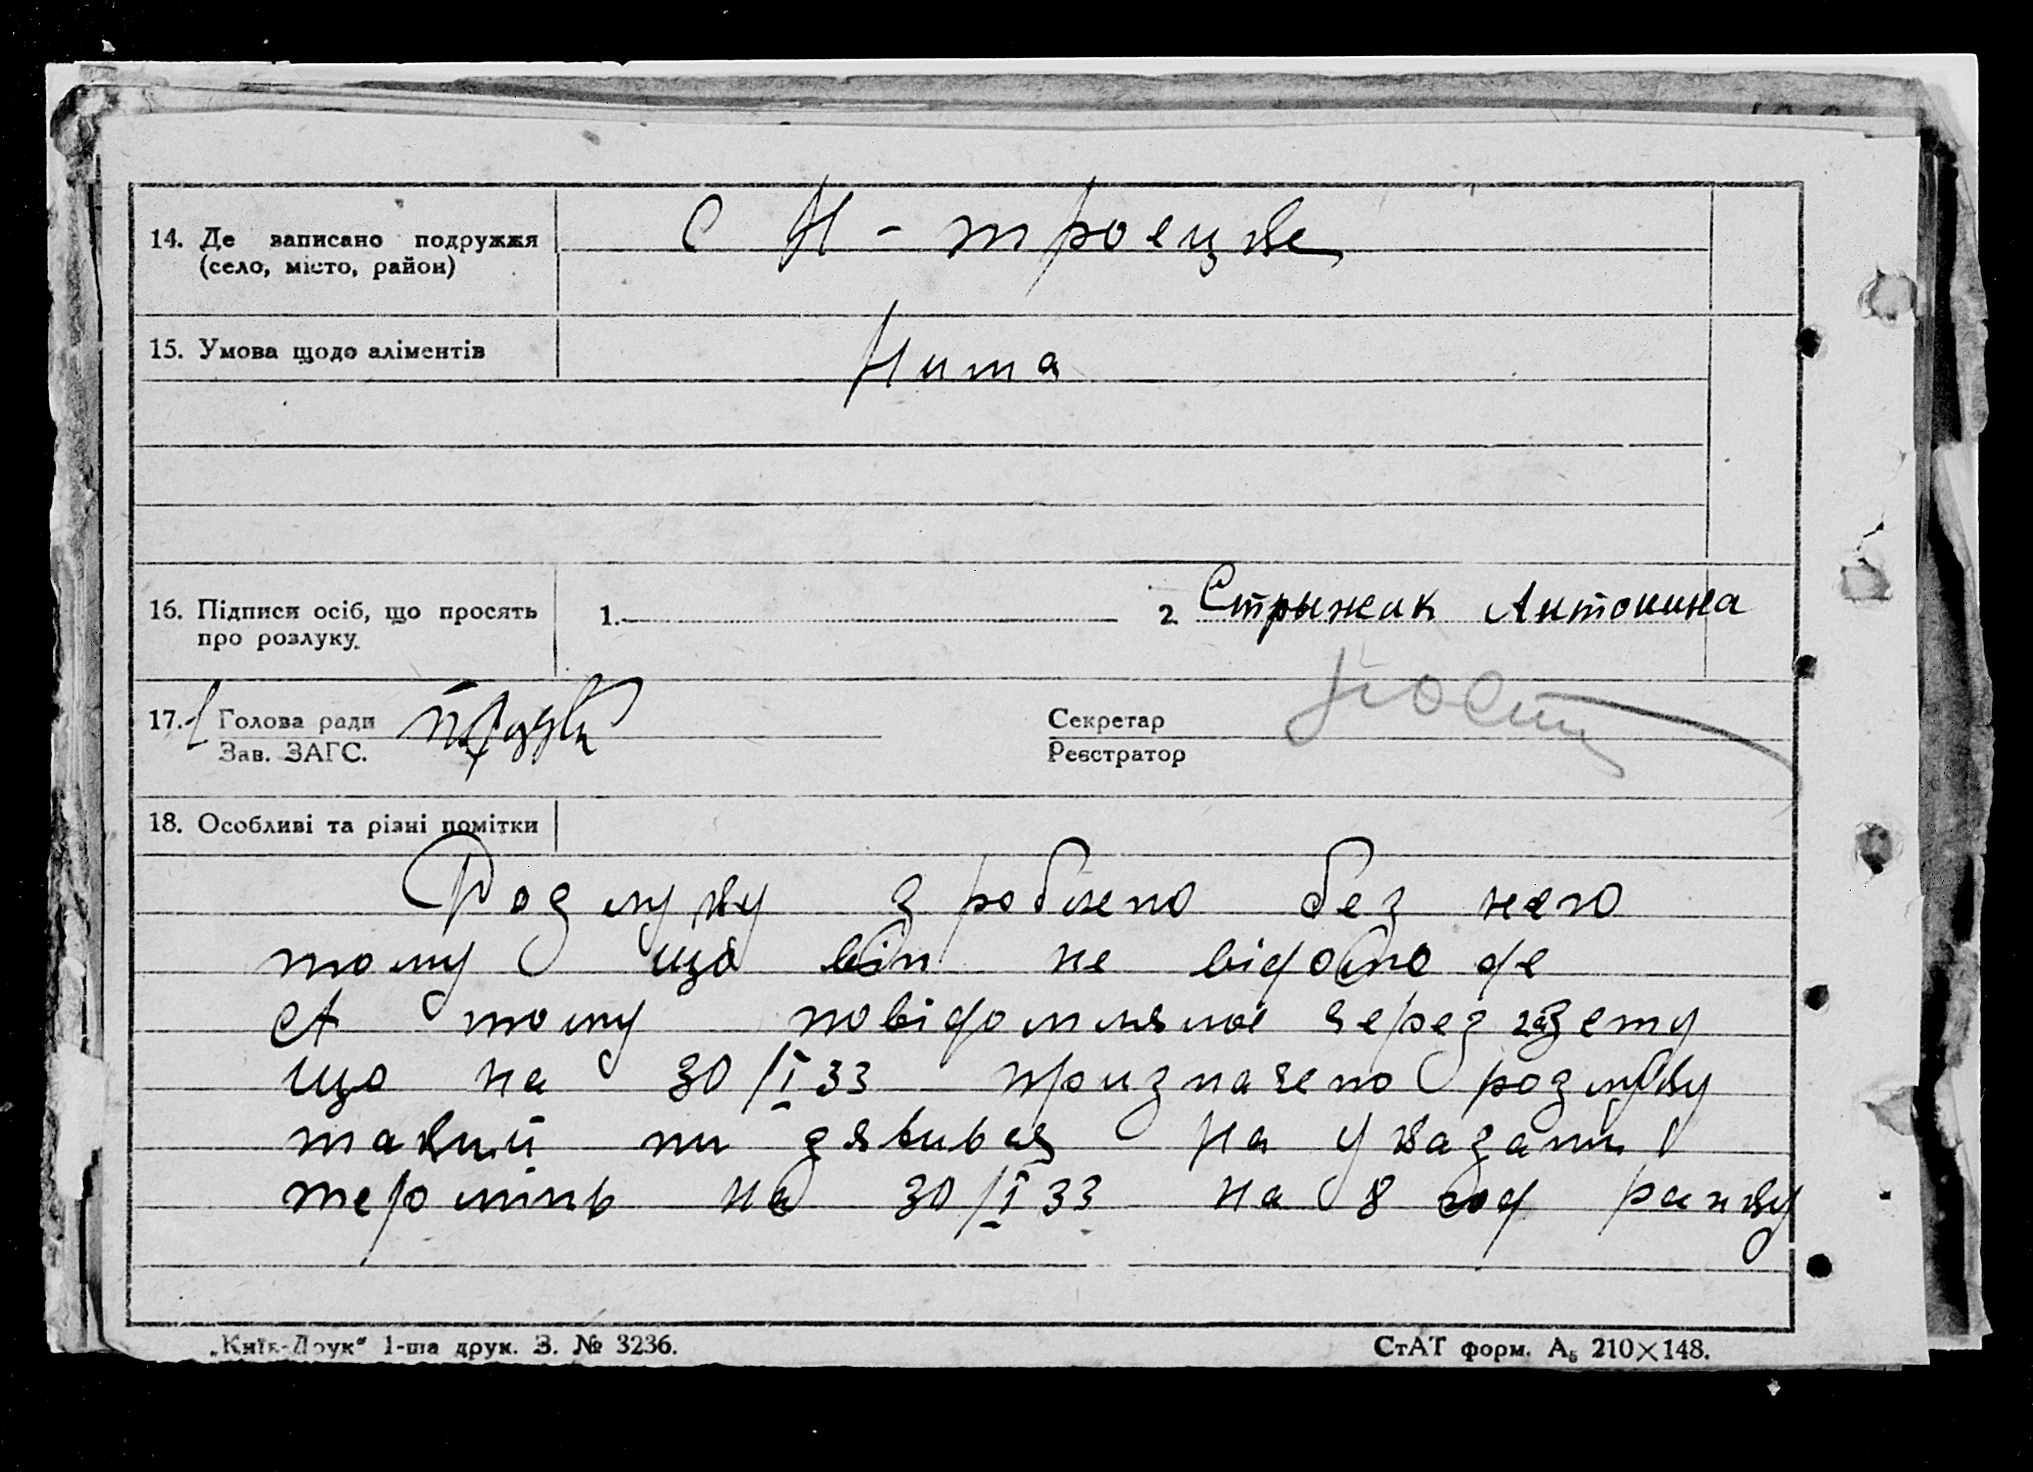 14. Де записано подружжя
(село, місто, район)
с Н-троецке
15. Умова щодо аліментів
Нима
16. Підписи осіб, що просять
про розлуку.
1.
2. Стрыжак Антонина
17. Голова ради
Зав. ЗАГС.
Секретар
Реєстратор
18. Особливі та різні помітки
Розлуку зроблено без него
тому що він не відомо де
А тому повідомлямое через газету
що на 30/I 33 призначено розлуку
такий ни зявився на указаний
термінь на 30/I 33 на 8 год ранку
„Київ-Друк" 1-ша друк. З. № 3236.
СтАТ форм. А₅ 210×148.